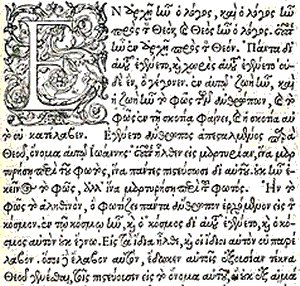 ΕΝ ἀρχῇ ἦν ὁ λόγος, καὶ ὁ λόγος ἦν
πρὸς τὸν Θεόν, καὶ Θεὸς ἦν ὁ λόγος. οὗτος
ἦν ἐν ἀρχῇ πρὸς τὸν Θεόν. Πάντα δι'
αὐτοῦ ἐγένετο, καὶ χωρὶς αὐτοῦ ἐγένετο οὐ-
δὲ ἓν, ὃ γέγονεν. ἐν αὐτῷ ζωὴ ἦν, καὶ
ἡ ζωὴ ἦν τὸ φῶς τῶν ἀνθρώπων, καὶ τὸ
φῶς ἐν τῇ σκοτίᾳ φαίνει, καὶ ἡ σκοτία αὐ
τὸ οὐ κατέλαβεν. Ἐγένετο ἄνθρωπος ἀπεσταλμένος παρὰ
Θεοῦ, ὄνομα αὐτῷ Ἰωάννης· οὗτος ἦλθεν εἰς μαρτυρίαν, ἵνα μαρ-
τυρήσῃ περὶ τοῦ φωτός, ἵνα πάντες πιστεύσωσι δι' αὐτοῦ. οὐκ ἦν ἐ-
κεῖνος τὸ φῶς, ἀλλ' ἵνα μαρτυρήσῃ περὶ τοῦ φωτός. Ἦν τὸ
φῶς τὸ ἀληθινόν, ὃ φωτίζει πάντα ἄνθρωπον ἐρχόμενον εἰς τὸν
κόσμον. ἐν τῷ κόσμῳ ἦν, καὶ ὁ κόσμος δι' αὐτοῦ ἐγένετο, καὶ ὁ κό-
σμος αὐτὸν οὐκ ἔγνω. Εἰς τὰ ἴδια ἦλθε, καὶ οἱ ἴδιοι αὐτὸν οὐ παρέ-
λαβον. ὅσοι δὲ ἔλαβον αὐτόν, ἔδωκεν αὐτοῖς ἐξουσίαν τέκνα
Θεοῦ γενέσθαι, τοῖς πιστεύουσιν εἰς τὸ ὄνομα αὐτοῦ, οἳ οὐκ ἐξ αἱμά